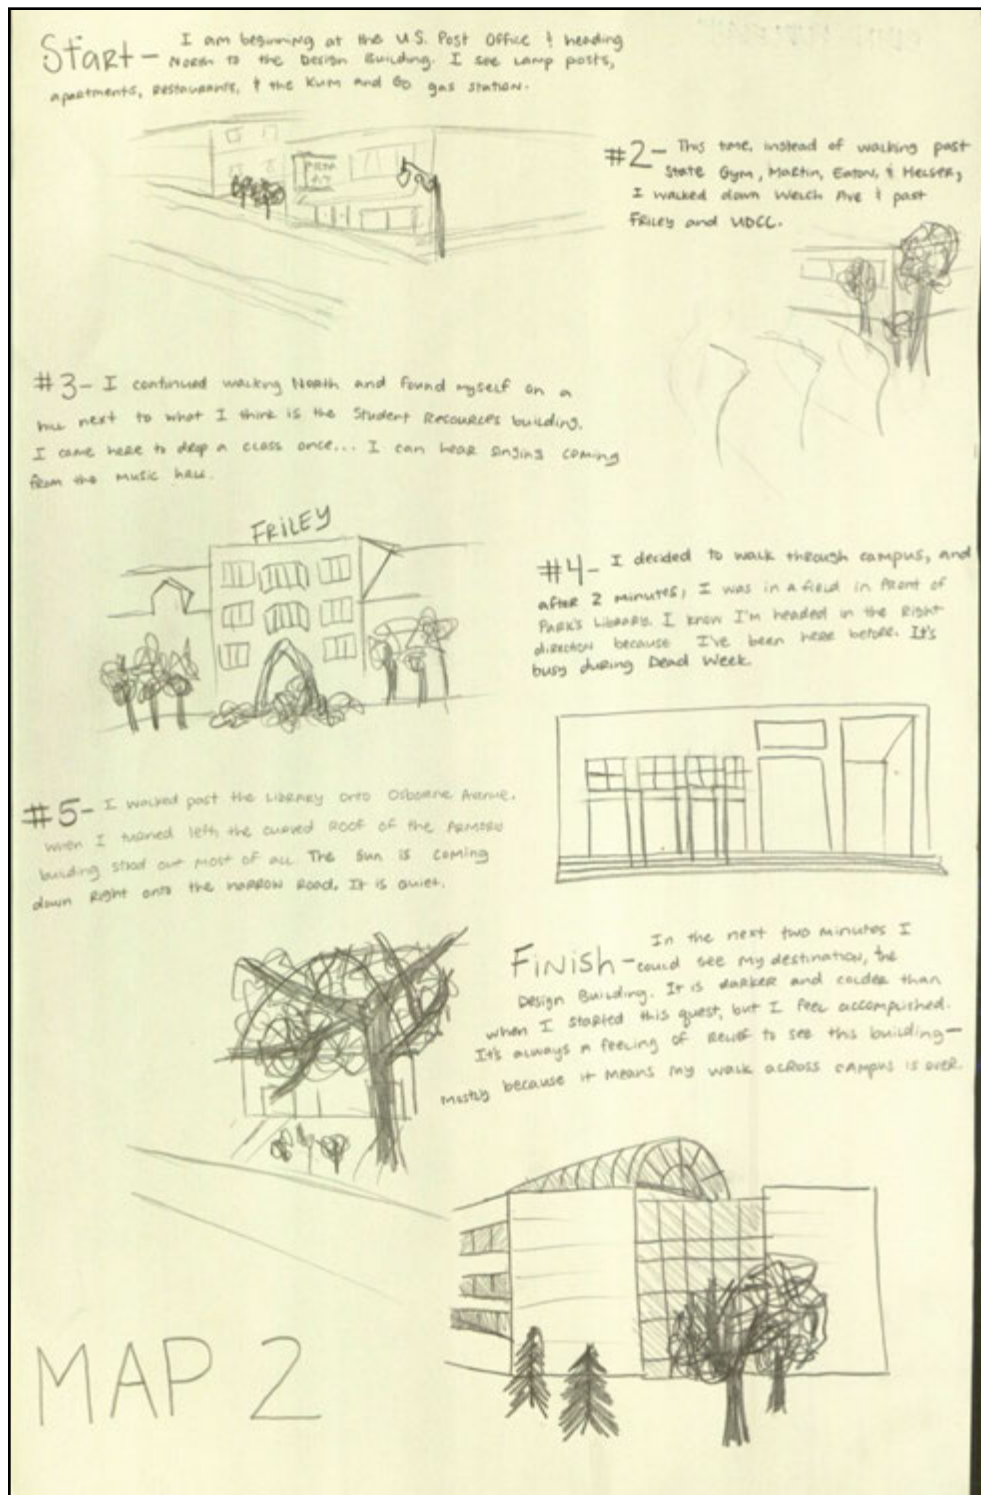 Start - I am beginning at the U.S. Post Office & heading
North to the Design Building. I see lamp posts,
apartments, restaurants, & the Kum and Go gas station.
#2 - This time, instead of walking past
State Gym, Martin, Eaton, & Helser,
I walked down Welch Ave & past
Friley and UDCC.
#3 - I continued walking North and found myself on a
hill next to what I think is the Student Resources building.
I came here to drop a class once... I can hear singing coming
from the music hall.
FRiLEY
#4 - I decided to walk through campus, and
after 2 minutes, I was in a field in front of
Park's Library. I know I'm headed in the right
direction because I've been here before. It's
busy during Dead Week.
#5 - I walked past the Library onto Osborne Avenue.
When I turned left the curved roof of the Armory
building stood out most of all. The sun is coming
down right onto the narrow road. It is quiet.
Finish - In the next two minutes I
could see my destination, the
Design Building. It is darker and colder than
when I started this quest, but I feel accomplished.
It's always a feeling of relief to see this building—
mostly because it means my walk across campus is over.
MAP 2